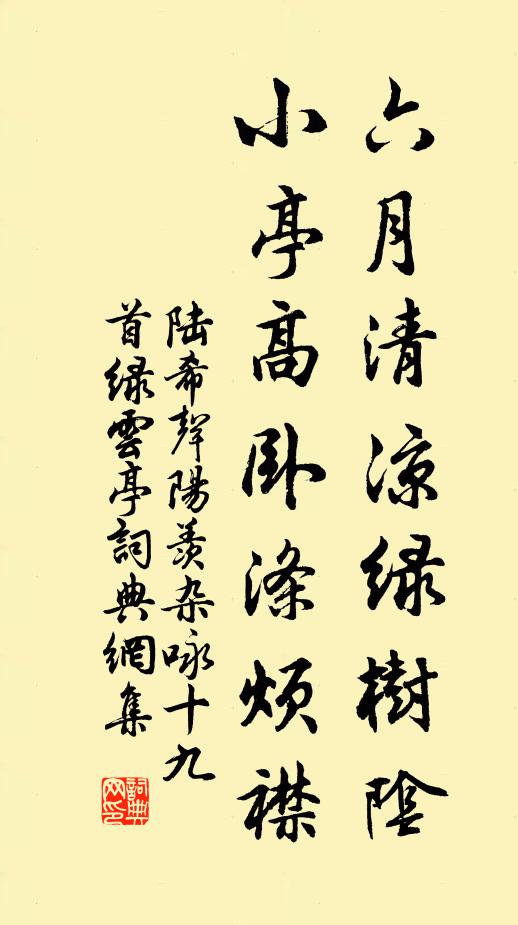 六月清涼緑樹陰
小亭高卧滌煩襟
陸希聲陽羨杂咏十九
首緑雲亭詞典網集
詞典
网印